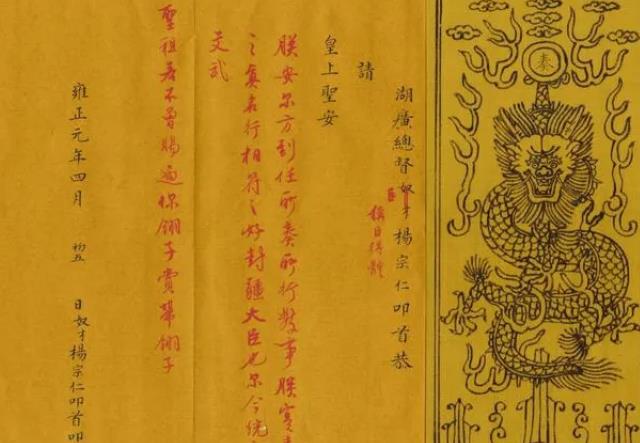 奏
湖廣總督奴才楊宗仁叩首恭
臣
稱臣得體
請
皇上聖安
朕安尔方到任所奏所行數事朕實
之真名行相符之好封疆大臣也尔今統
文武
聖祖若不曾賜過你翎子賞帶翎子
雍正元年四月 初五 日奴才楊宗仁叩首叩